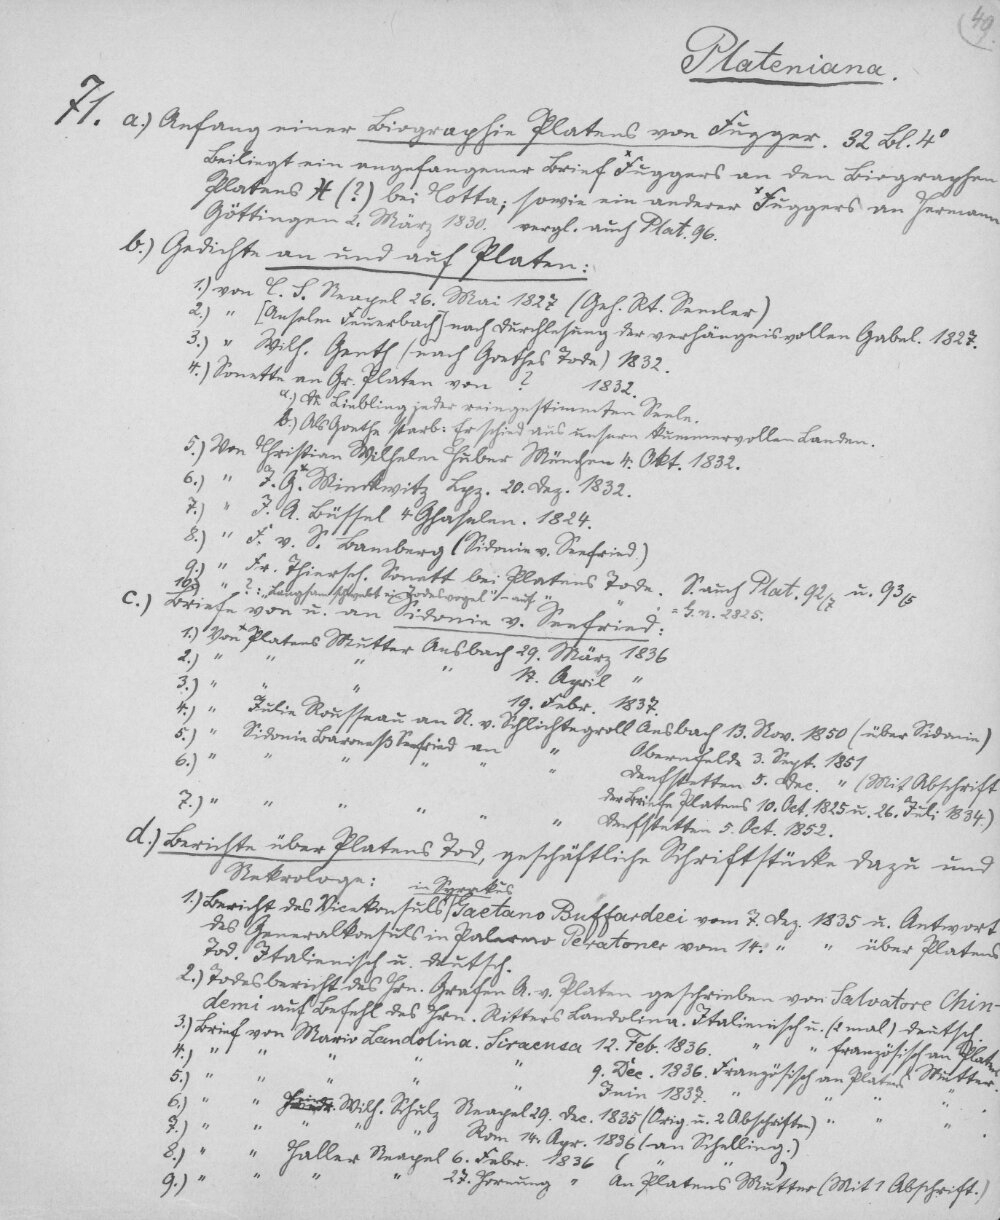 49.
Plateniana.
71. a.) Anfang einer Biographie Platens von Fugger. 32 Bl. 4°
Beiliegt ein angefangener Brief Fuggers an den Biographen
Platens H (?) bei Cotta; sowie ein anderer Fuggers an Hermann
Göttingen 2. März 1830. vergl. auch Plat. 96.
b.) Gedichte an und auf Platen:
1.) von C. S. Neapel 26. Mai 1827 (Geh. Rt. Semler)
2.) " [Anselm Feuerbach] nach Durchlesung der verhängnisvollen Gabel. 1827.
3.) " Wilh. Genth (nach Goethes Tode) 1832.
4.) Sonette an Gr. Platen von ? 1832.
a.) Liebling jeder reingestimmten Seele.
b.) Als Goethe starb: Er schied aus unsern kummervollen Landen.
5.) Von Christian Wilhelm Huber München 4. Okt. 1832.
6.) " J. G. Minckwitz Lpz. 20. Dez. 1832.
7.) " J. A. Büssel 4 Ghaselen. 1824.
8.) " F. v. S. Bamberg (Sidonie v. Seefried)
9.) " Fr. Thiersch. Sonett bei Platens Tode. S. auch Plat. 92/7 u. 93/5
10.) " ? : "Langsam schwebt ein Todesvogel" – auf " " . = G. n. 2825.
c.) Briefe von u. an Sidonie v. Seefried:
1.) Von Platens Mutter Ansbach 29. März 1836
2.) " " " " 17. April "
3.) " " " 19. Febr. 1837.
4.) " Julie Rousseau an N. v. Schlichtegroll Ansbach 13. Nov. 1850 (über Sidonie)
5.) " Sidonie Baroneß Seefried an " Obernfelde 3. Sept. 1851
6.) " " " " " " Denfstetten 5. Dec. " (Mit Abschrift
der Briefe Platens 10. Oct. 1825 u. 26. Juli 1834.)
7.) " " " " " " Denfstetten 5. Oct. 1852.
d.) Berichte über Platens Tod, geschäftliche Schriftstücke dazu und
Nekrologe:
in Syrakus
1.) Bericht des Vicekonsuls Gaetano Buffardeci vom 7. Dez. 1835 u. Antwort
des Generalkonsuls in Palermo Peratoner vom 14. " " über Platens
Tod. Italienisch u. deutsch.
2.) Todesbericht des Hrn. Grafen A. v. Platen geschrieben von Salvatore Chin-
demi auf Befehl des Hrn. Ritters Landolina. Italienisch u. (2 mal) deutsch.
3.) Brief von Mario Landolina. Siracusa 12. Feb. 1836. " " französisch an Platens
4.) " " " " " 9. Dec. 1836. Französisch an Platens Mutter.
5.) " " " " " Juin 1837. " " " " .
6.) " " Wilh. Schulz Neapel 29. Dec. 1835 (Orig. u. 2 Abschriften) " " " .
7.) " " " " " Rom 14. Apr. 1836 (an Schelling.)
8.) " " Haller Neapel 6. Febr. 1836 ( " " )
9.) " " " " 27. Hornung " An Platens Mutter (Mit 1 Abschrift.)